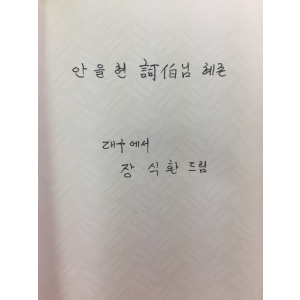 안을현 詞伯님 혜존
대구에서
장식환 드림